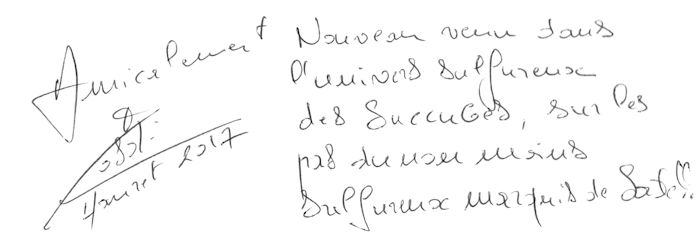 Amicalement
&
Nouveau venu dans
l'univers sulfureux
des Succubes, sur les
pas du non moins
sulfureux marquis de Sade...